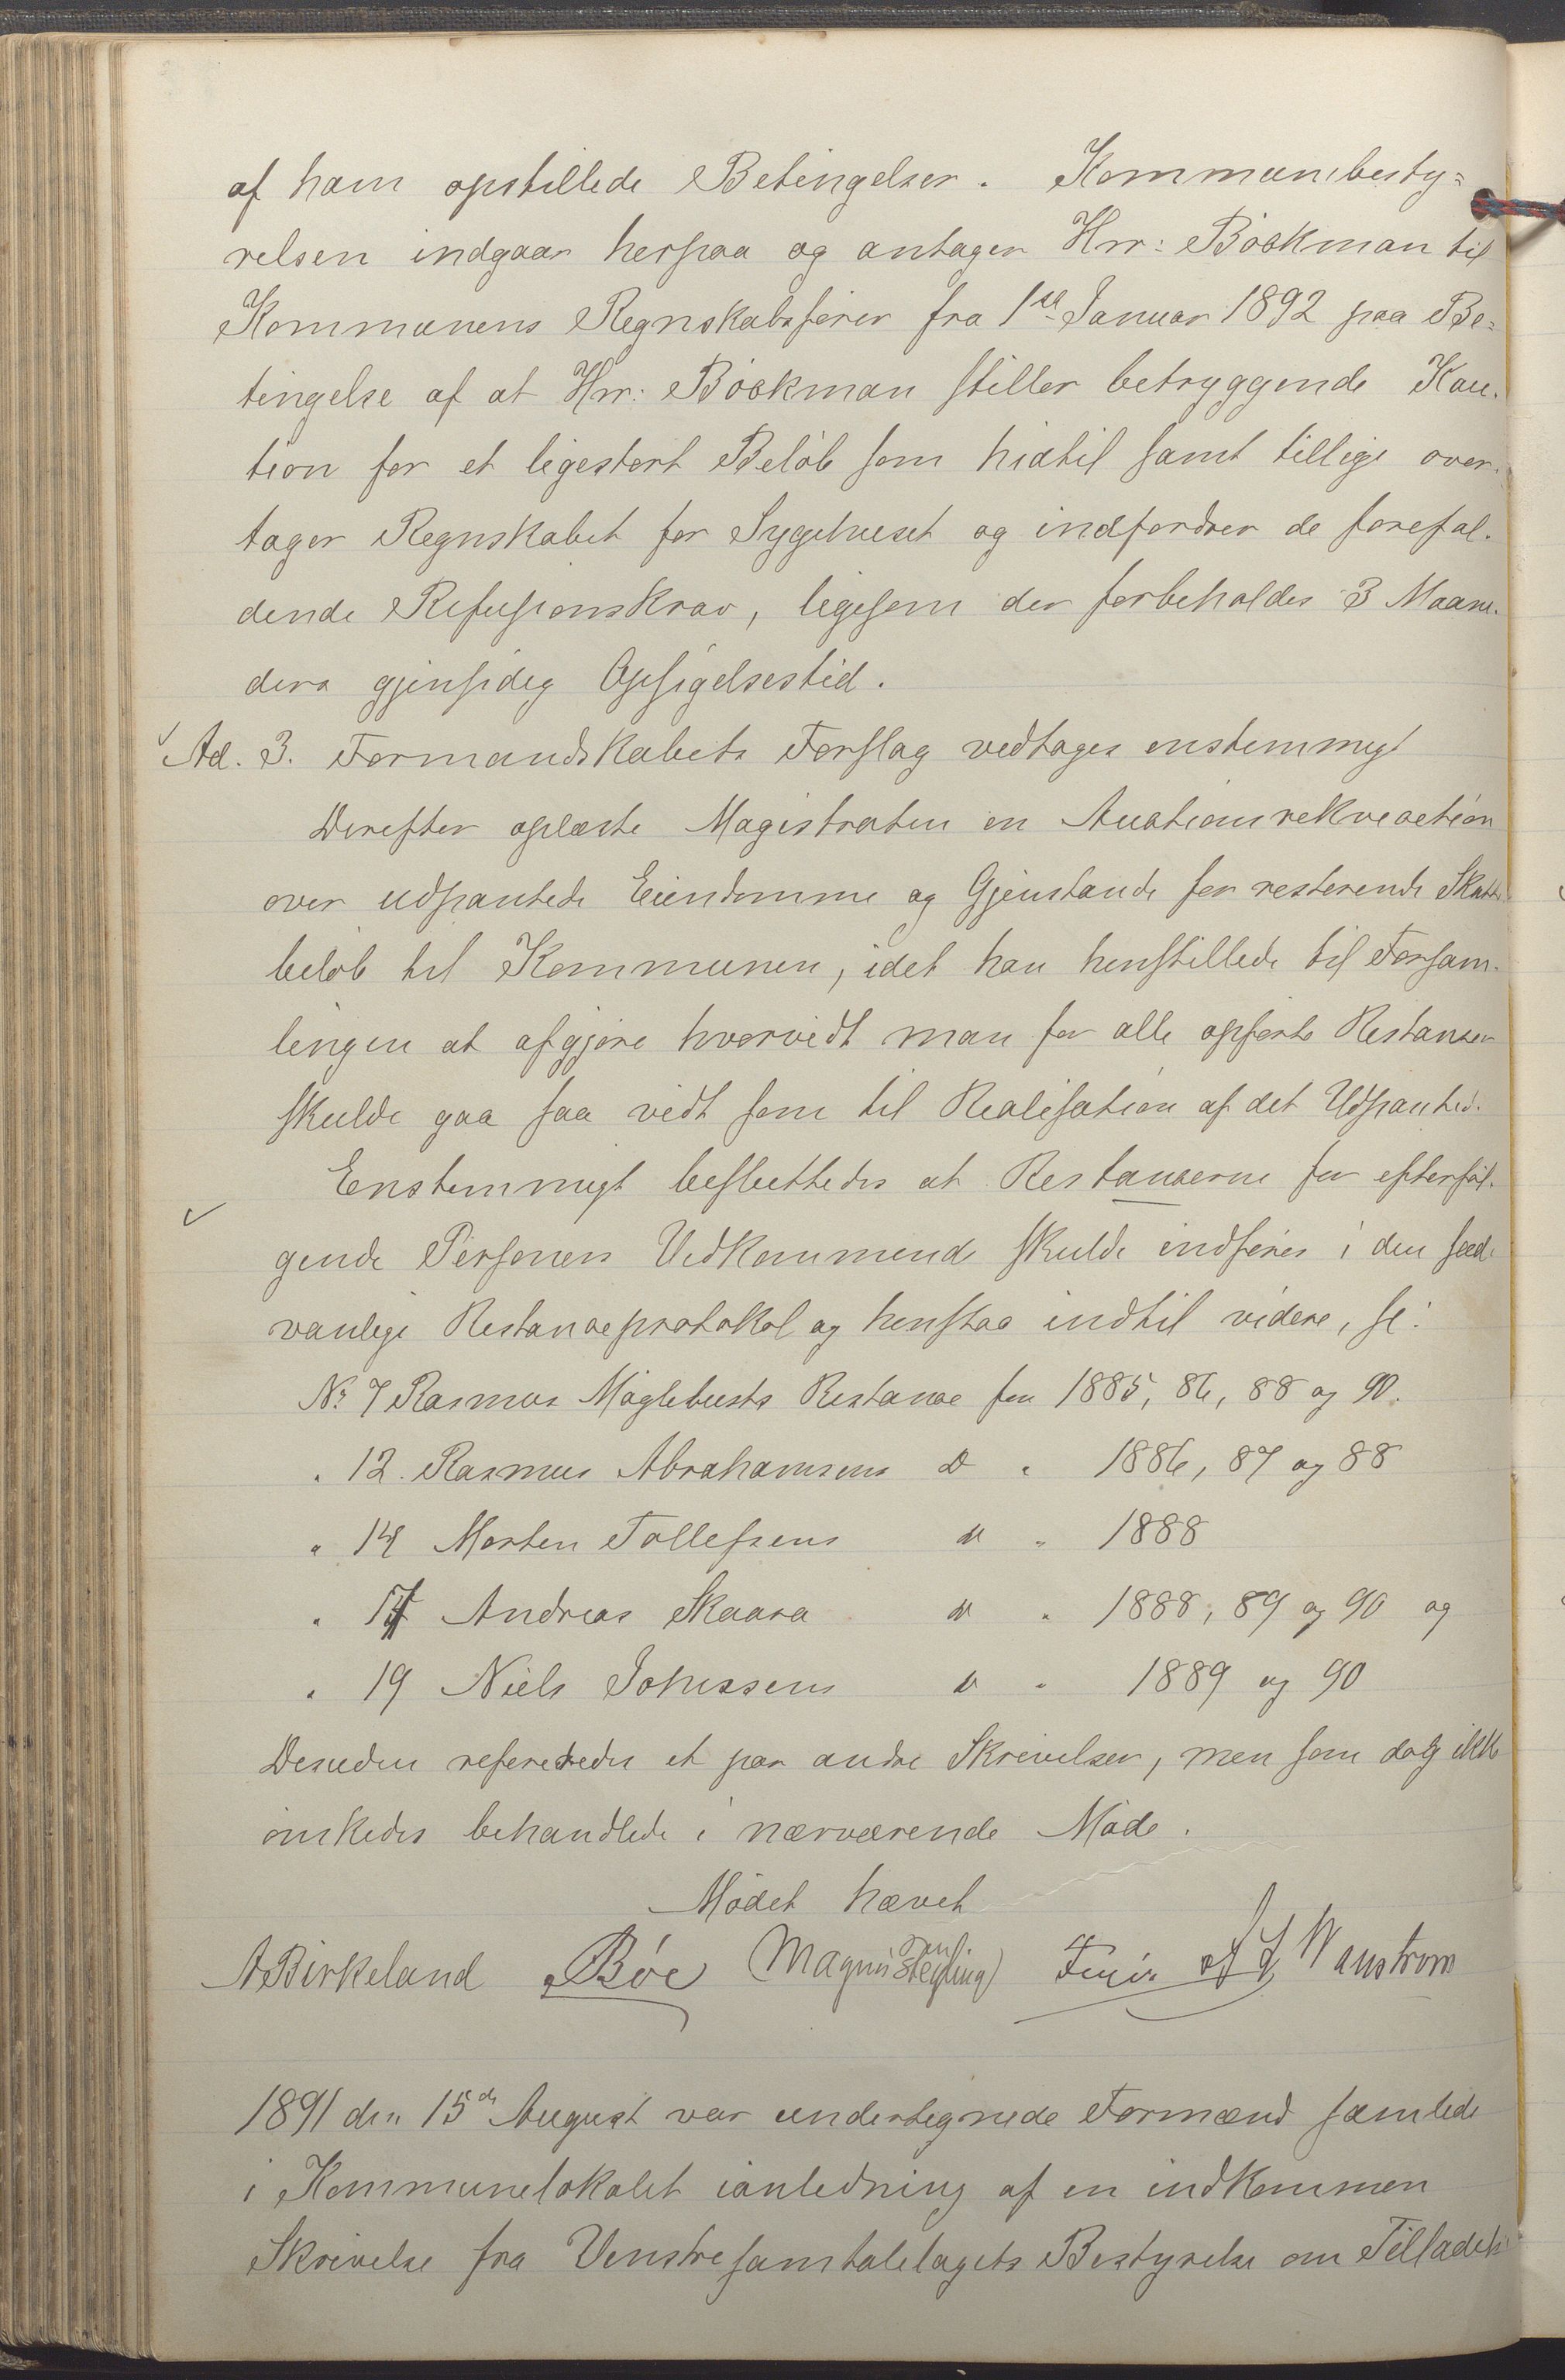 af ham opstillede Betingelser. Kommunebesty=
relsen indgaar herpaa og antager Hrr: Böckman til
Kommunens Regnskabsfører fra 1ste Januar 1892 paa Be=
tingelse af at Hrr: Böckman stiller betryggende Kau-
tion for et ligestort Beløb som hidtil samt tillige over-
tager Regnskabet for Sygehuset og indfordrer de forefal-
dende Refusionskrav, ligesom der forbeholdes 3 Maane-
ders gjensidig Opsigelsestid.
Ad. 3. Formandskabets Forslag vedtages enstemmigt
Derefter oplæste Magistraten en Auctionsrekvisition
over udpantede Eiendomme og Gjenstande for resterende Skatte
beløb til Kommunen, idet han henstillede til Forsam-
lingen at afgjøre hvorvidt man for alle opførte Restanser
skulde gaa saa vidt som til Realisation af det Udpantede.
Enstemmigt besluttedes at Restancerne for efterføl-
gende Personers Vedkommende skulde indføres i den sæd-
vanlige Restanceprotokol og henstaa indtil videre, se:
No 7 Rasmus Møglebusts Restance for 1885, 86, 88 og 90.
" 12. Rasmus Abrahamsens Do " 1886, 87 og 88
" 14 Morten Tollefsens " " 1888
" 17 Andreas Skaara " " 1888, 89 og 90 og
" 19 Niels Johnssens " " 1889 og 90
Desuden refereredes et par andre Skrivelser, men som dog ikke
ønskedes behandlede i nærværende Møde.
Mødet hævet
A Birkeland Bøe Magnus Stegling Wanstrom
1891 den 15de August var undertegnede Formænd samlede
i Kommunelokalet ianledning af en indkommen
Skrivelse fra Venstresamtalelagets Bestyrelse om Tilladels